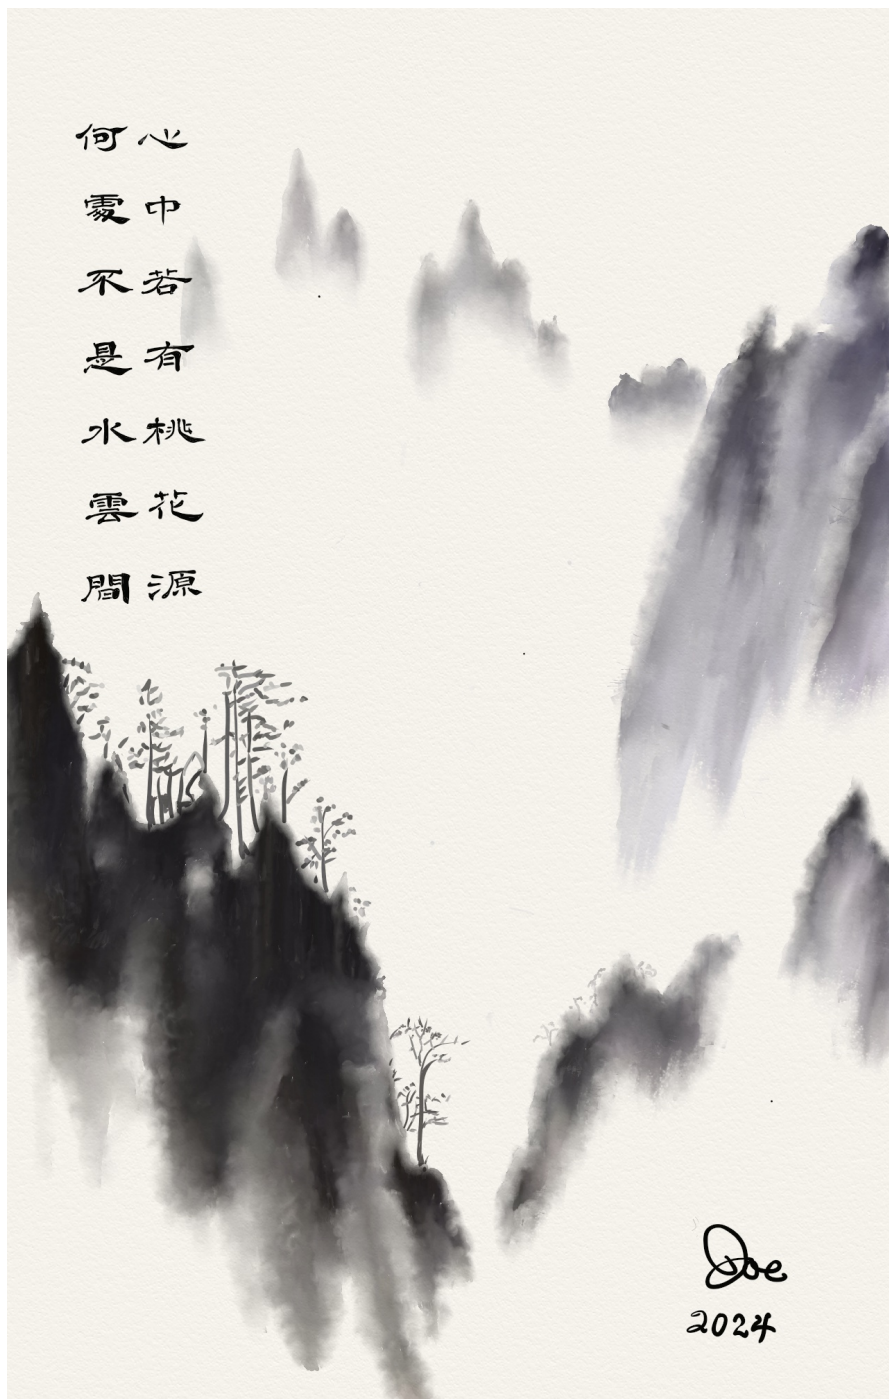 心中若有桃花源
何處不是水雲間
Joe
2024